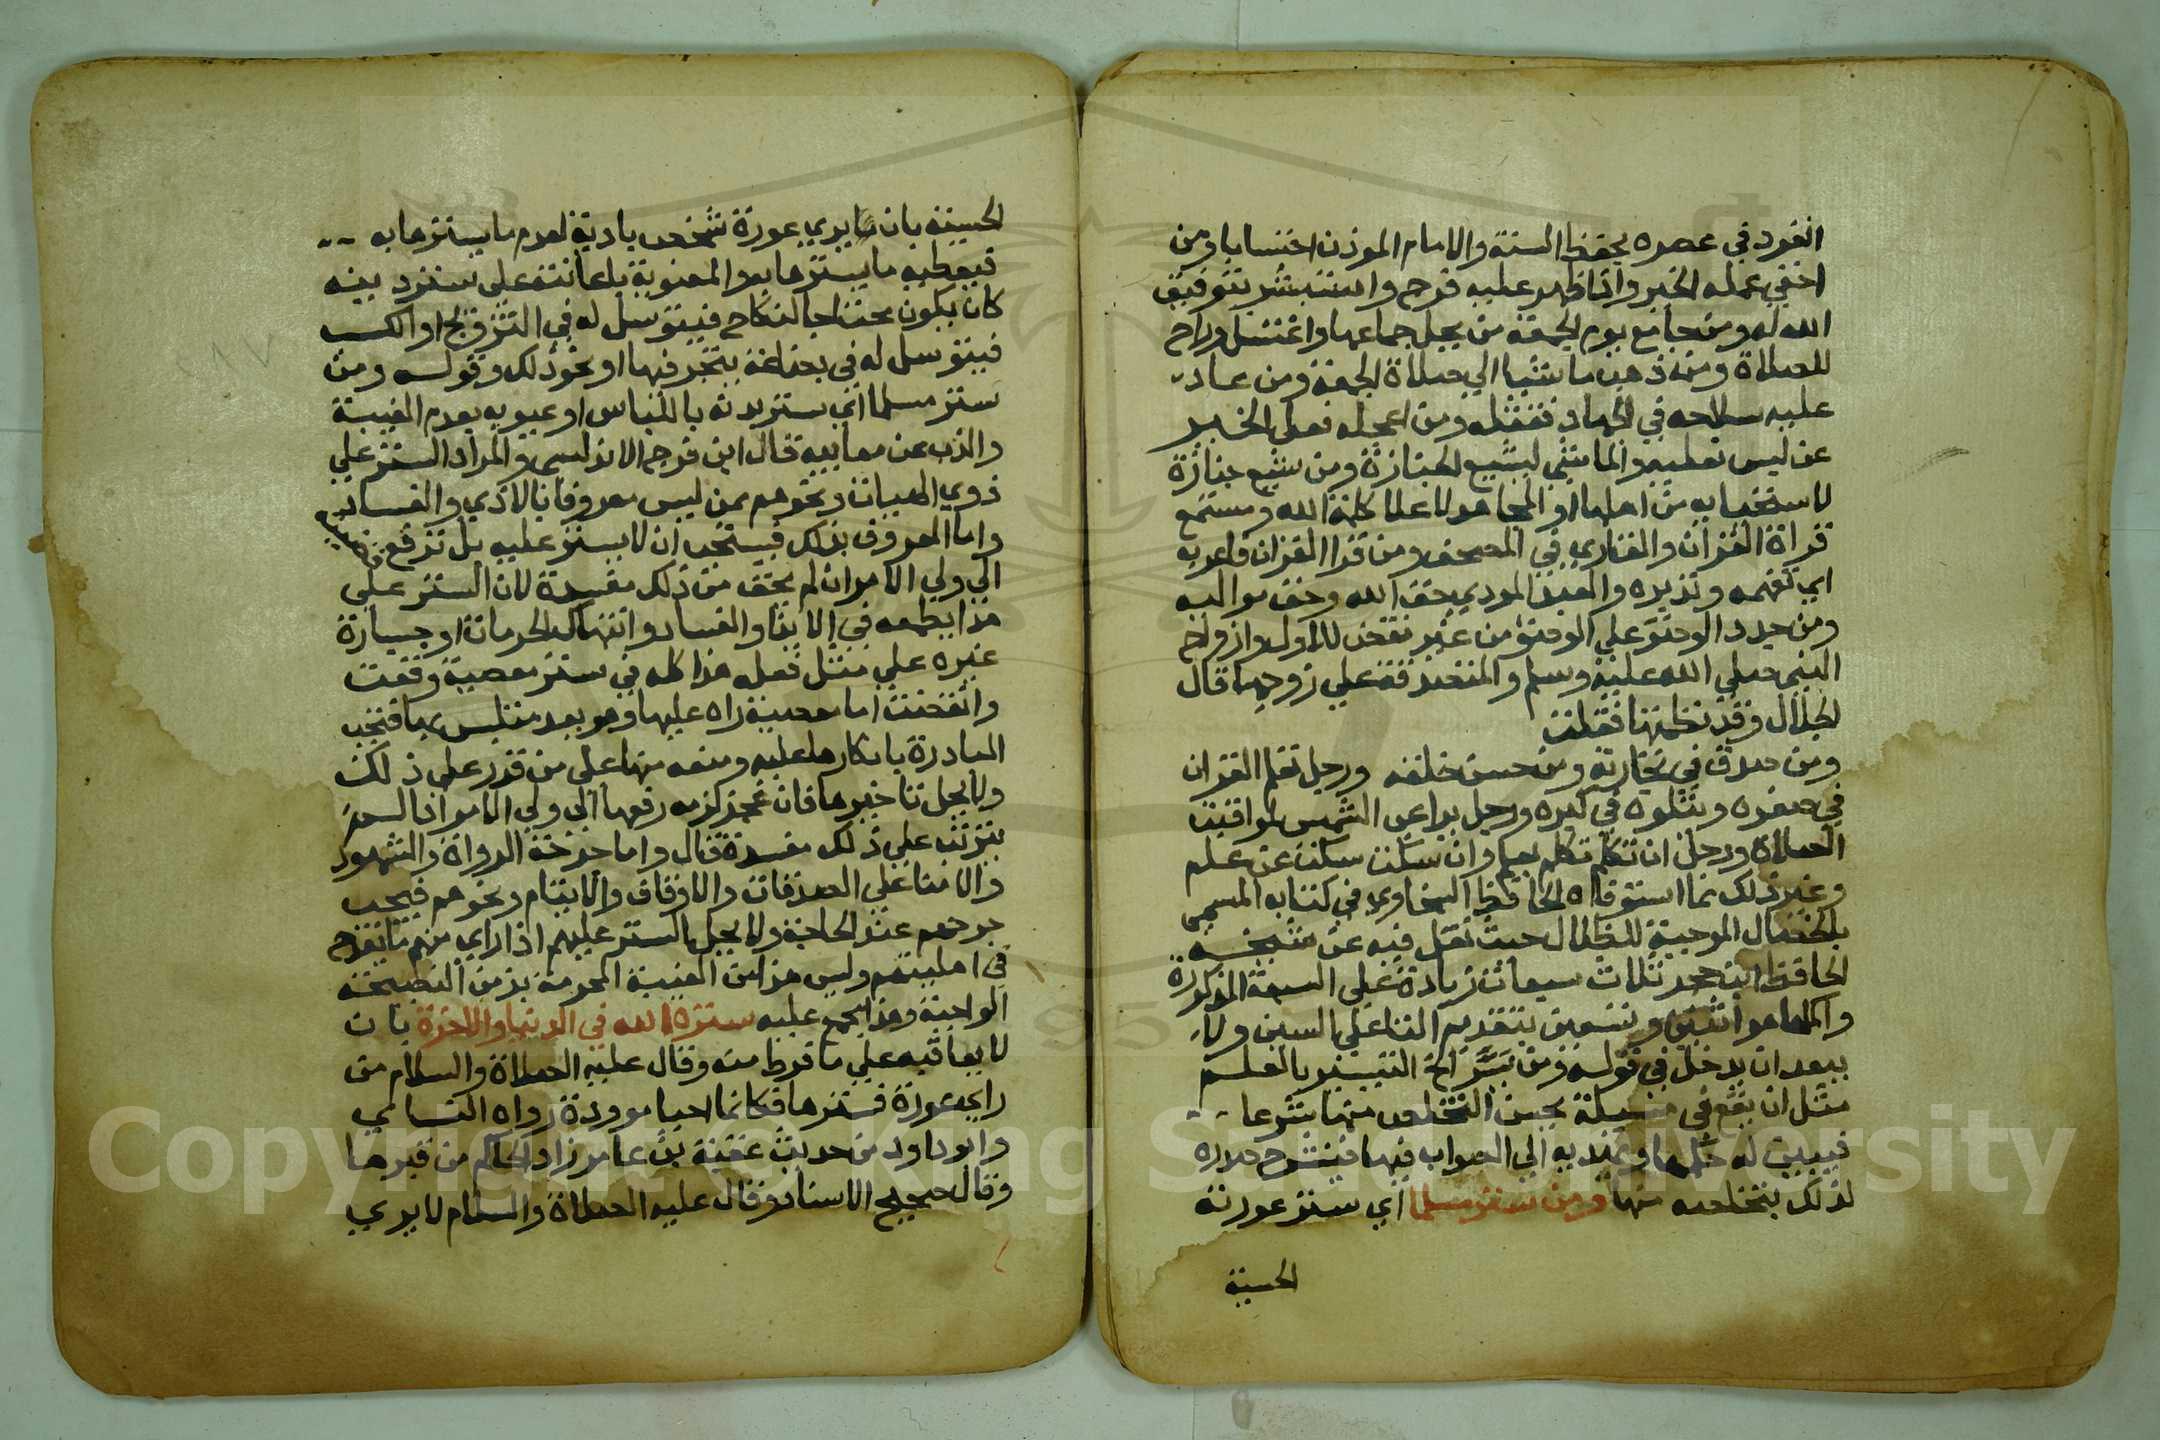 انفرد في عصره بحفظ السنة والامام الموذن احتسابا ومن
اخفي عمله الخير واذا ظهر عليه فرح واستبشر بتوفيق
الله له ومن جامع يوم الجمعة من يحل جماعها واغتسل وراح
للصلاة ومن ذهب ماشيا الي صلاة الجمعة ومن عاد
عليه سلاحه في الجهاد فقتله ومن اعجله فعل الخير
عن لبس نعليه والماشي لتشييع الجنازة ومن شيع جنازة
لا ستحيا به من اهلها او المجاهد لاعلا كلمة الله ومستمع
قراة القران والقاري في المصحف ومن قرا القران فاعربه
اي تفهمه وتدبره والعبد المودي حق الله وحق مواليه
ومن جدد الوضؤ علي الوضؤ من غير نقض للاول وازواج
النبي صلي الله عليه وسلم والمتصدقة علي زوجها قال
الجلال وقد نظمتها فقلت
ومن صدق في تجارته ومن حسن خلقه ورجل تعلم القران
في صغره ويتلوه في كبره ورجل يراعي الشمس لمواقيت
الصلاة ورجل ان تكلم تكلم بعلم وان سكت سكت عن علم
وغير ذلك مما استوفاه الحافظ السخاوي في كتابه المسمي
بالخصال الموجبة للظلال حيث نقل فيه عن شيخه
الحافظ ابن حجر ثلاث سبعات زيادة علي السبعة المذكورة
واكملها هو اثنين وتسعين بتقديم التا علي السين ولا
يبعد ان يدخل في قوله ومن يسر الخ التيسير بالعلم
مثل ان يقع في مسئلة يحسن التخلص منها شرعا
فيبين له حكمها ويهديه الي الصواب فيها فينشرح صدره
لذلك بتخلصه منها ومن ستر مسلما اي ستر عورته
الحسية
الحسية بان يري عورة شخص بادية لعدم ما يسترها به
فيعطيه ما يسترها به والمعنوية باعانته علي ستر دينه
كان يكون محتاجا لنكاح فيتوسل له في التزويج او الكسب
فيتوسل له في بضاعة يتجر فيها او نحو ذلك وقوله ومن
ستر مسلما اي ستر بدنه باللباس او عيوبه بعدم الغيبة
والذب عن معايبه قال ابن فرج الاندلسي والمراد الستر علي
ذوي الهيات ونحوهم ممن ليس معروفا بالاذي والفساد
واما المعروف بذلك فيستحب ان لا يستر عليه بل ترفع قضيته
الي ولي الامر ان لم يخف من ذلك مفسدة لان الستر علي
هذا يطمعه في الايذا والفساد وانتهاك الحرمات او جسارة
غيره علي مثل فعله هذا كله في ستر معصية وقعت
وانقضت اما معصية راه عليها وهو بعد متلبس بها فتجب
المبادرة بانكارها عليه ومنعه منها علي من قدر علي ذلك
ولا يحل تاخيرها فان عجز لزمه رفعها الي ولي الامر اذا لم
يترتب علي ذلك مفسدة قال واما جرحة الرواة والشهود
والامنا علي الصدقات والاوقاف والايتام ونحوهم فيجب
جرحهم عند الحاجة ولا يحل الستر عليهم اذا راي منهم ما يقدح
في اهليتهم وليس هذا من الغيبة المحرمة بل من النصيحة
الواجبة وهذا مجمع عليه ستره الله في الدنيا والاخرة بان
لا يعاقبه علي ما فرط منه وقال عليه الصلاة والسلام من
راي عورة فسترها فكانما احيا موودة رواه النساي
وابوداود من حديث عقبة بن عامر زاد الحاكم من قبرها
وقال صحيح الاسناد وقال عليه الصلاة والسلام لا يري
Copyright © King Saud University